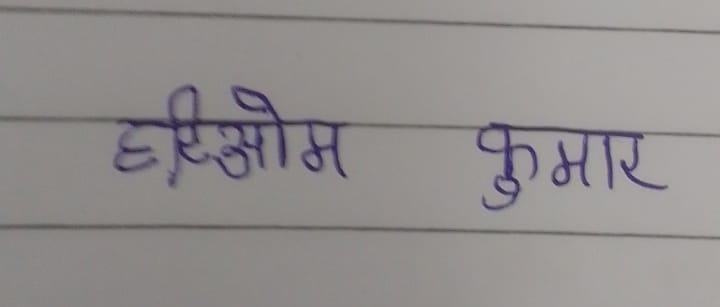 हरिओम कुमार